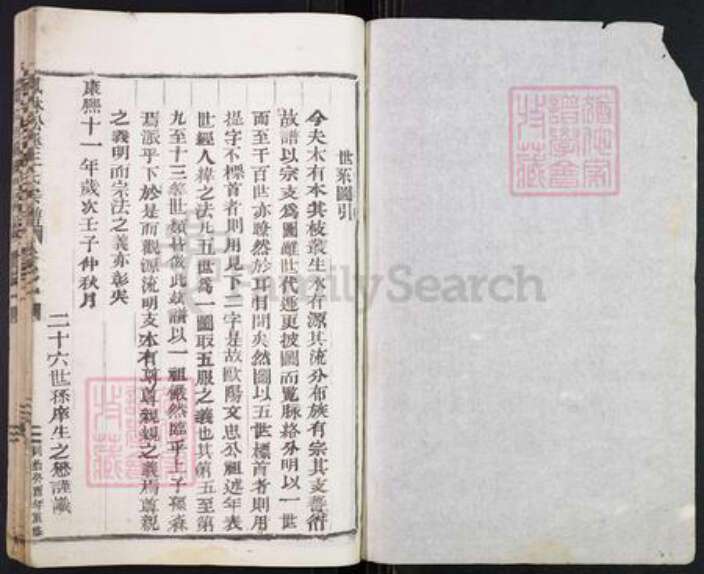 世系圖引
今夫木有本其枝叢生水有源其流分布族有宗其支蕃衍
故譜以宗支為圖雖世代遞更披圖而覽脉絡分明以一世
而至千百世亦瞭然於耳有間矣然圖以五世標首者則用
提字不標首者則用見下二字是故歐陽文忠公祖述年表
世經人緯之法凡五世為一圖取五服之義也其第五至第
九至十三等世類皆倣此兹譜以一祖儼然臨乎上子孫森
焉派乎下於是而觀源流明支本有尊尊親親之義焉尊親
之義明而宗法之義亦彰矣
康熙十一年歲次壬子仲秋月
二十六世孫庠生之懋謹識
道德家
譜學會
收藏
FamilySearch